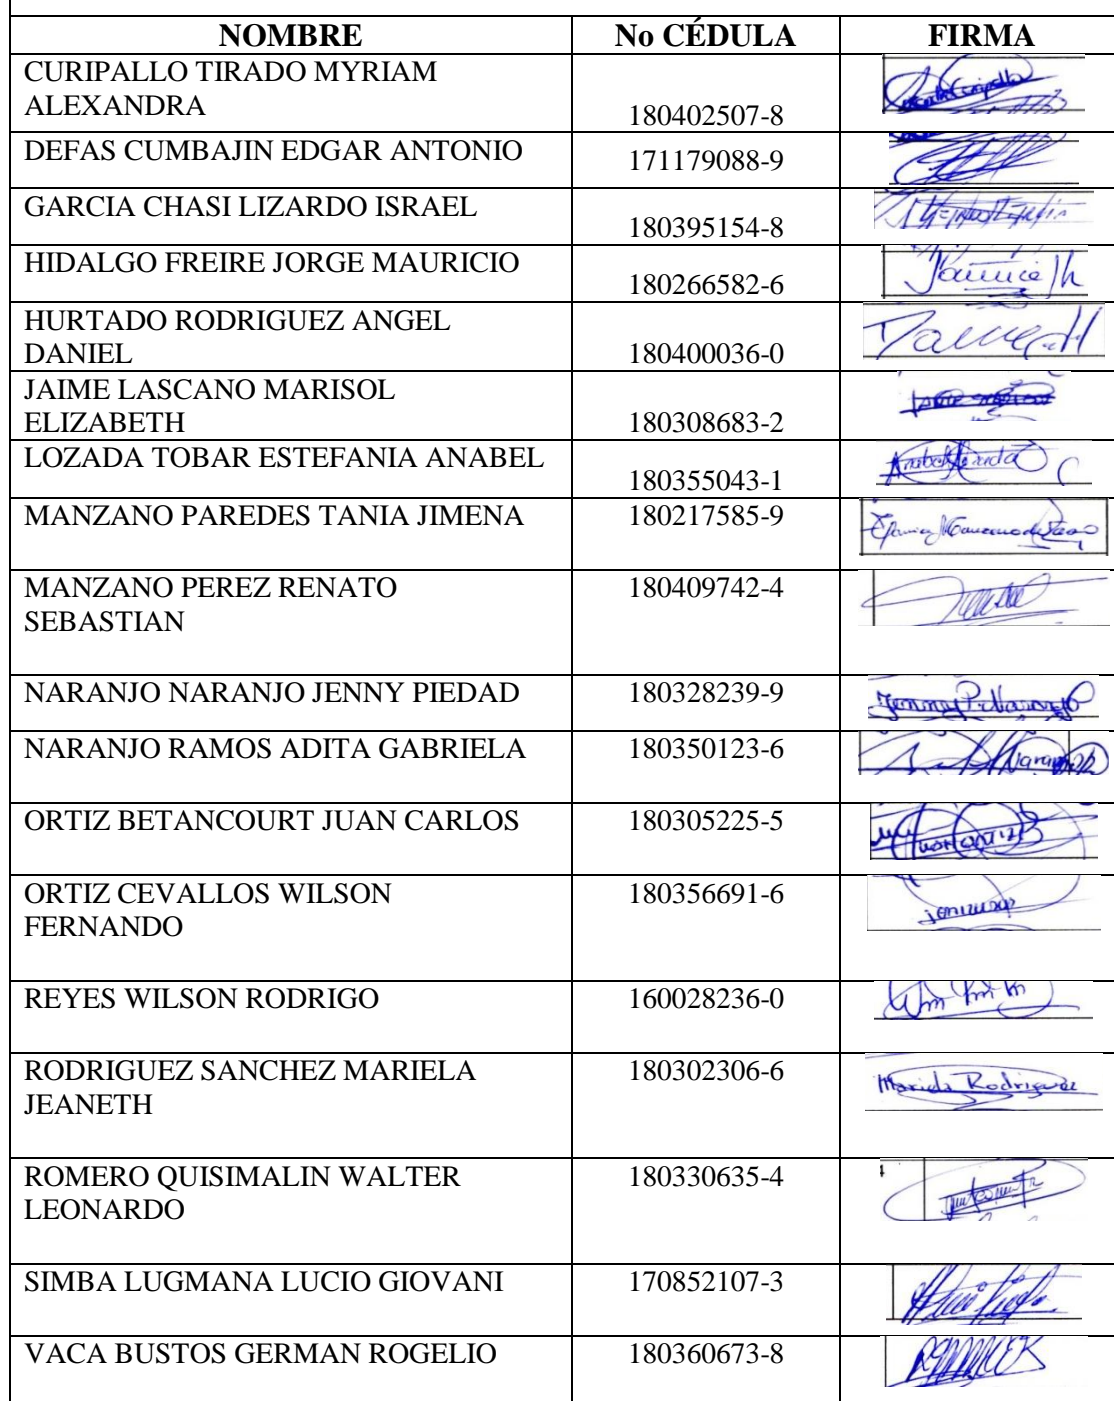 NOMBRE No CÉDULA FIRMA
CURIPALLO TIRADO MYRIAM
ALEXANDRA 180402507-8
DEFAS CUMBAJIN EDGAR ANTONIO 171179088-9
GARCIA CHASI LIZARDO ISRAEL 180395154-8
HIDALGO FREIRE JORGE MAURICIO 180266582-6
HURTADO RODRIGUEZ ANGEL
DANIEL 180400036-0
JAIME LASCANO MARISOL
ELIZABETH 180308683-2
LOZADA TOBAR ESTEFANIA ANABEL 180355043-1
MANZANO PAREDES TANIA JIMENA 180217585-9
MANZANO PEREZ RENATO 180409742-4
SEBASTIAN
NARANJO NARANJO JENNY PIEDAD 180328239-9 Jenny P. Naranjo
NARANJO RAMOS ADITA GABRIELA 180350123-6
ORTIZ BETANCOURT JUAN CARLOS 180305225-5
ORTIZ CEVALLOS WILSON 180356691-6
FERNANDO
REYES WILSON RODRIGO 160028236-0
RODRIGUEZ SANCHEZ MARIELA 180302306-6 Mariela Rodriguez
JEANETH
ROMERO QUISIMALIN WALTER 180330635-4
LEONARDO
SIMBA LUGMANA LUCIO GIOVANI 170852107-3
VACA BUSTOS GERMAN ROGELIO 180360673-8